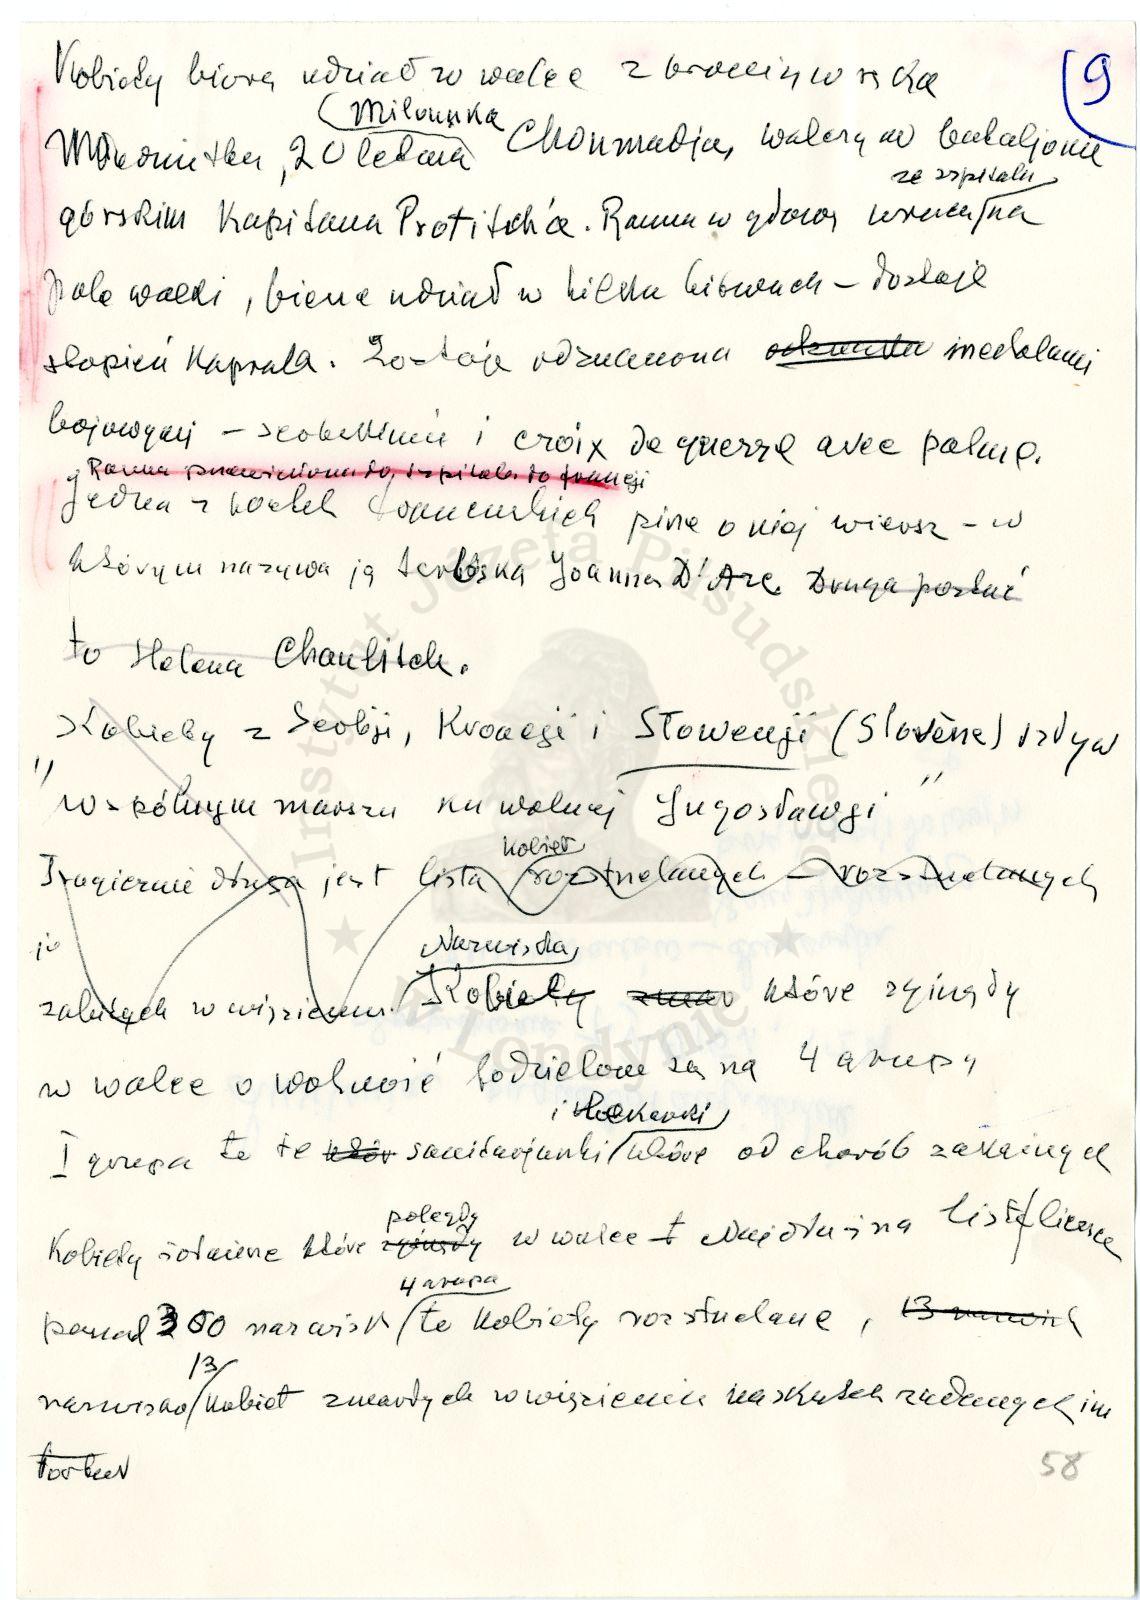 9
Kobiety biorą udział w walce z bronią w ręku
(Milounka
20 letnia Chonmadja, walczy w bataljonie
ze szpitala
górskim Kapitana Protitch'a. Ranna w głowę wraca na
pole walki, bierze udział w kilku bitwach – dostaje
stopień Kaprala. Zostaje odznaczona medalami
bojowymi – i croix de guerre avec palme.
Ranna przewieziona do szpitala do Francji
Jedna z poetek francuskich pisze o niej wiersz – w
którym nazywa ją serbska Joanna D'Arc. Druga postać
to Helena Chanlitch.
Kobiety z Serbji, Kroacji i Słowenji (Slovène) idą w
"wspólnym marszu ku wolnej Jugosławji"
kobiet
Tragicznie długa jest lista rozstrzelanych – rozstrzelanych
zabitych w więzieniu.
Nazwiska
Kobiety które zginęły
w walce o wolność podzielone są na 4 grupy
i lekarki
I grupa to te sanitarjuszki które od chorób zakaźnych
poległy
Kobiety żołnierze które zginęły w walce Najdłuższa lista licząca
4 grupa
ponad 300 nazwisk to Kobiety rozstrzelane, 13 nazwisk
13
nazwisko kobiet zmarłych w więzieniu na skutek zadanych im
tortur
58
Instytut Józefa Piłsudskiego
w Londynie